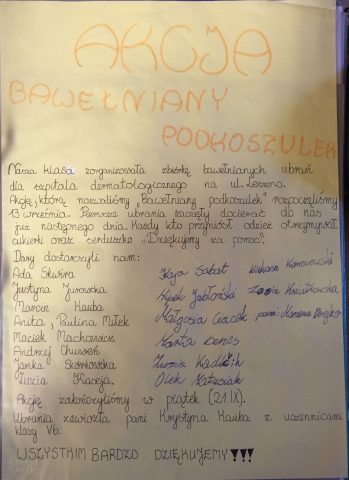 AKCJA
BAWEŁNIANY
PODKOSZULEK
Nasza klasa zorganizowała zbiórkę bawełnianych ubrań
dla szpitala dermatologicznego na ul. Leszno.
Akcję, którą nazwaliśmy „Bawełniany podkoszulek" rozpoczęliśmy
13 września. Pierwsze ubrania zaczęły docierać do nas
już następnego dnia. Każdy kto przyniósł odzież otrzymywał
cukierki oraz serduszko „Dziękujemy za pomoc".
Dary dostarczyli nam:
Ada Skwira Kaja Sabat Łukasz
Justyna Jaroszka Jabłoński Zosia Kwiatkowska
Marcin Kauba Małgosia Ciacek pani Marzena
Anita, Paulina Miłek Marta
Maciek
Andrzej Zuzia
Janka Skorkowska Olek Matusiak
Zuzia
Akcję zakończyliśmy w piątek (21.IX).
Ubrania zawiozła pani Krystyna Kauba z uczennicami
klasy Vb.
WSZYSTKIM BARDZO DZIĘKUJEMY !!!